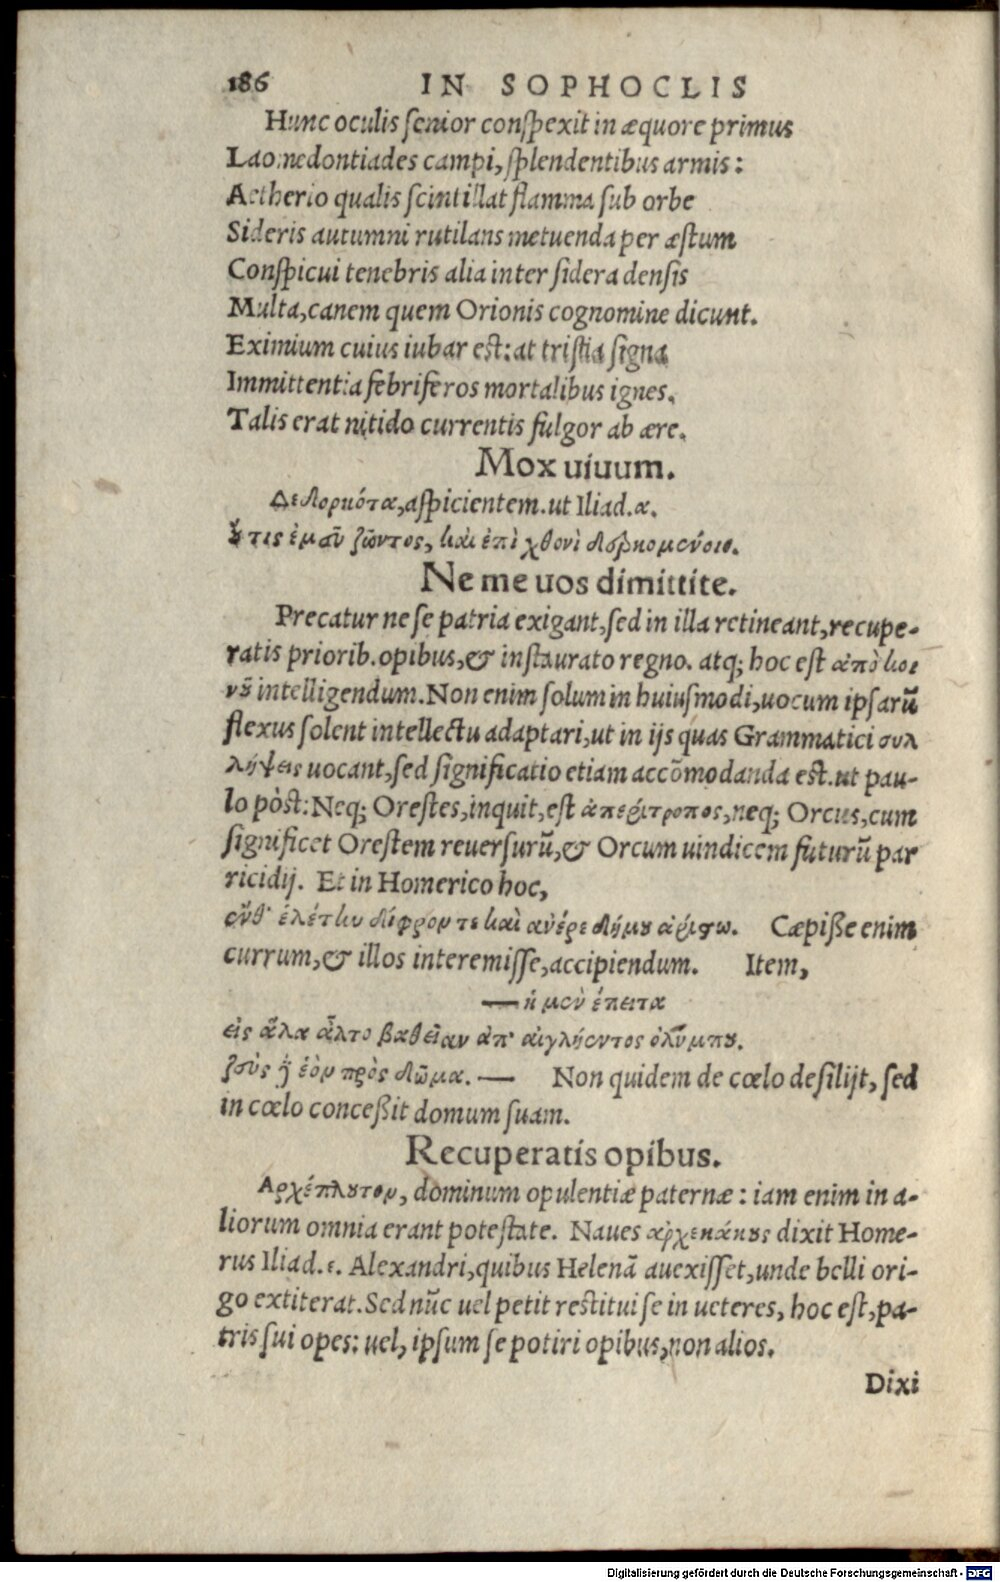 186 IN SOPHOCLIS
Hunc oculis ſenior conſpexit in æquore primus
Laomedontiades campi, ſplendentibus armis:
Aetherio qualis ſcintillat flamma ſub orbe
Sideris autumni rutilans metuenda per æstum
Conſpicui tenebris alia inter ſidera denſis
Multa, canem quem Orionis cognomine dicunt.
Eximium cuius iubar est: at triſtia ſigna
Immittentia febriferos mortalibus ignes.
Talis erat nitido currentis fulgor ab ære.
Mox uiuum.
Δεδορκότα, aſpicientem. ut Iliad. α.
οὔτις ἐμοῦ ζῶντος, καὶ ἐπὶ χθονὶ δερκομένοιο.
Ne me uos dimittite.
Precatur ne ſe patria exigant, ſed in illa retineant, recupe-
ratis priorib. opibus, & instaurato regno. atq; hoc est ἀπὸ κοι
νοῦ intelligendum. Non enim ſolum in huiuſmodi, uocum ipſarū
flexus ſolent intellectu adaptari, ut in ijs quas Grammatici συλ
λήψεις uocant, ſed ſignificatio etiam accōmodanda est. ut pau-
lo pòst: Neq; Orestes, inquit, est ἀπερίτροπος, neq; Orcus, cum
ſignificet Orestem reuerſurū, & Orcum uindicem futurū par
ricidij. Et in Homerico hoc,
ἔνθ' ἑλέτην δίφρον τε καὶ ἀνέρε δήμου ἀρίστω. Cæpiße enim
currum, & illos interemiſſe, accipiendum. Item,
— ἡ μὲν ἔπειτα
εἰς ἅλα ἆλτο βαθεῖαν ἀπ' αἰγλήεντος ὀλύμπου.
ζεὺς δὲ ἑὸν πρὸς δῶμα. — Non quidem de cœlo deſilijt, ſed
in cœlo conceßit domum ſuam.
Recuperatis opibus.
Αρχέπλουτον, dominum opulentiæ paternæ: iam enim in a-
liorum omnia erant potestate. Naues ἀρχεκάκους dixit Home-
rus Iliad. ε. Alexandri, quibus Helenā auexiſſet, unde belli ori-
go extiterat. Sed nūc uel petit restitui ſe in ueteres, hoc eſt, pa-
tris ſui opes: uel, ipſum ſe potiri opibus, non alios.
Dixi
Digitalisierung gefördert durch die Deutsche Forschungsgemeinschaft - DFG